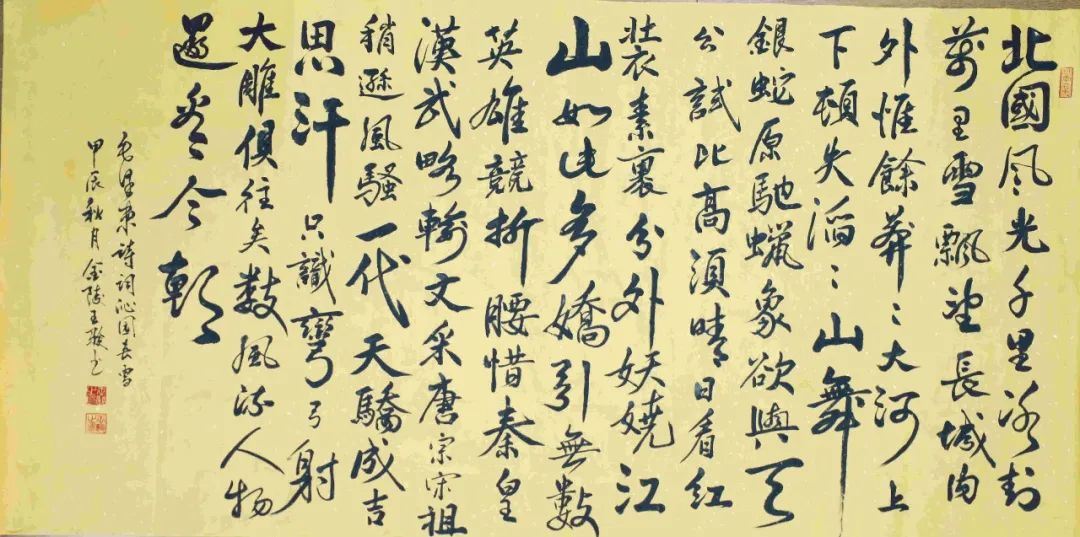 北國风光千里冰封
萬里雪飄望長城内
外惟餘莽〻大河上
下頓失滔〻山舞
銀蛇原馳蠟象欲與天
公試比高須晴日看紅
裝素裹分外妖嬈江
山如此多嬌引無數
英雄競折腰惜秦皇
漢武略輸文采唐宗宋祖
稍遜風騷一代天驕成吉
思汗只識彎弓射
大雕俱往矣數風流人物
還看今朝
毛澤東詩詞沁園春雪
甲辰秋月金陵王书